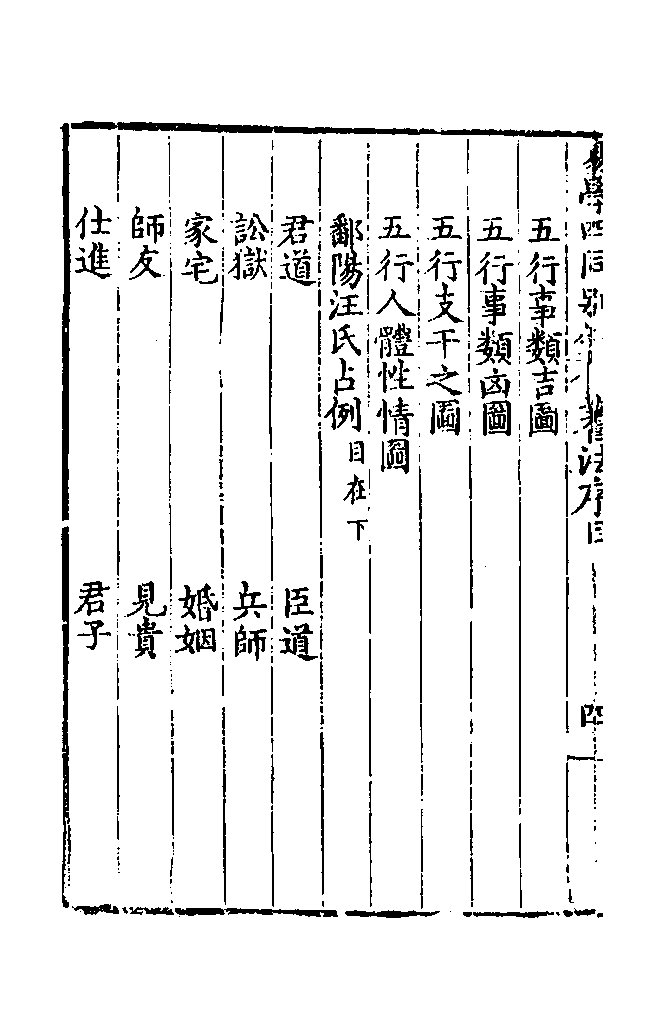 五行事𩔖吉圖
五行事𩔖㐫圖
五行支干之圖
五行人體性情圖
鄱陽汪氏占例目在下
君道　臣道
訟獄　兵師
家宅　婚姻
師友　見貴
仕進　君子
四